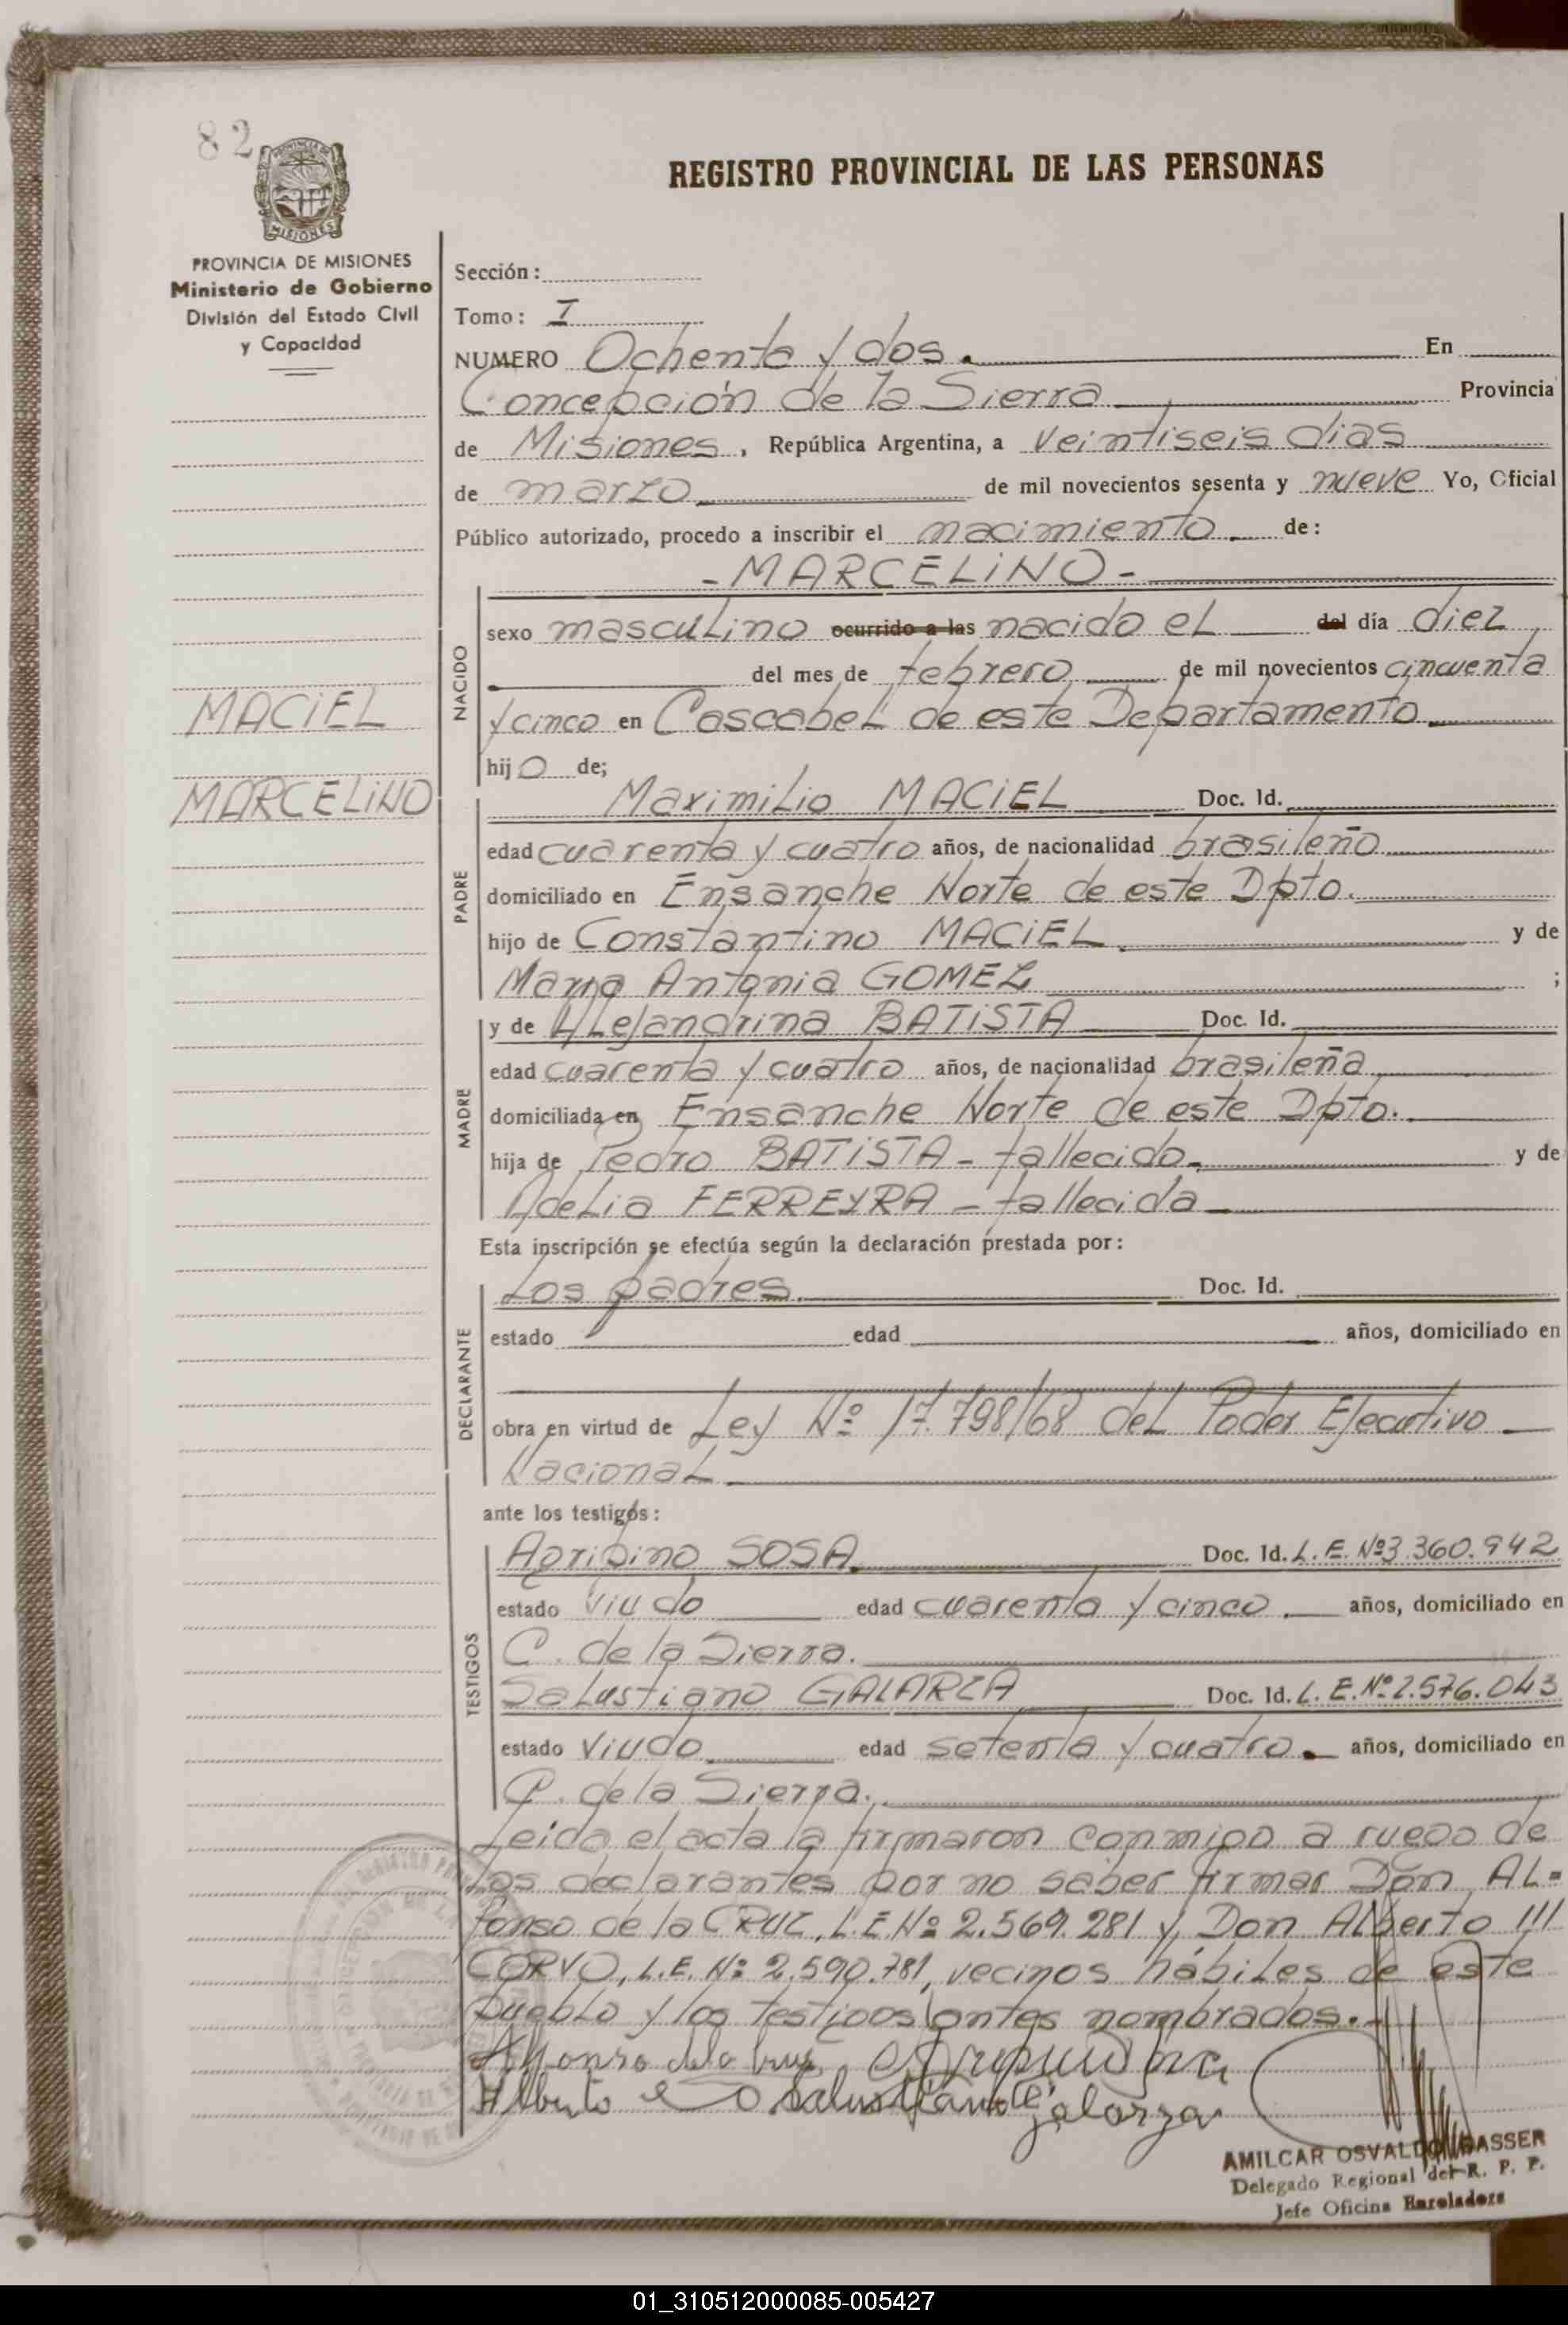 82
PROVINCIA DE MISIONES
REGISTRO PROVINCIAL DE LAS PERSONAS
PROVINCIA DE MISIONES
Ministerio de Gobierno
División del Estado Civil
y Capacidad
MACIEL
MARCELINO
Sección:
Tomo: I
NUMERO Ochenta y dos. En
Concepción de la Sierra Provincia
de Misiones, República Argentina, a veintiseis dias
de marzo de mil novecientos sesenta y nueve Yo, Oficial
Público autorizado, procedo a inscribir el nacimiento de:
- MARCELINO -
NACIDO
sexo masculino ocurrido a las nacido el del día diez
del mes de febrero de mil novecientos cincuenta
y cinco en Cascabel de este Departamento.
hijo de;
PADRE
Maximilio MACIEL Doc. Id.
edad cuarenta y cuatro años, de nacionalidad brasileño
domiciliado en Ensanche Norte de este Dpto.
hijo de Constantino MACIEL. y de
María Antonia GOMEZ ;
MADRE
y de Alejandrina BATISTA Doc. Id.
edad cuarenta y cuatro años, de nacionalidad brasileña
domiciliada en Ensanche Norte de este Dpto.
hija de Pedro BATISTA - fallecido. y de
Adelia FERREYRA - fallecida
Esta inscripción se efectúa según la declaración prestada por:
DECLARANTE
Los padres. Doc. Id.
estado edad años, domiciliado en
obra en virtud de Ley Nº 17.798/68 del Poder Ejecutivo
Nacional.
ante los testigos:
TESTIGOS
Agripino SOSA. Doc. Id. L.E. Nº3.360.942
estado viudo edad cuarenta y cinco. años, domiciliado en
C. de la Sierra.
Salustiano GALARZA Doc. Id. L.E. Nº2.576.043
estado viudo edad setenta y cuatro. años, domiciliado en
C. de la Sierra.
Leida el acta la firmaron conmigo a ruego de
los declarantes por no saber firmar Don AL=
fonso de la CRUZ, L.E. Nº 2.569.281 y, Don Alberto ///
CORVO, L.E. Nº 2.590.781, vecinos hábiles de este
pueblo y los testigos antes nombrados.
Alfonso de la Cruz Agripino Sosa
Alberto Salustiano Galarza
AMILCAR OSVALDO
Delegado Regional del R. P. P.
Jefe Oficina
01_310512000085-005427